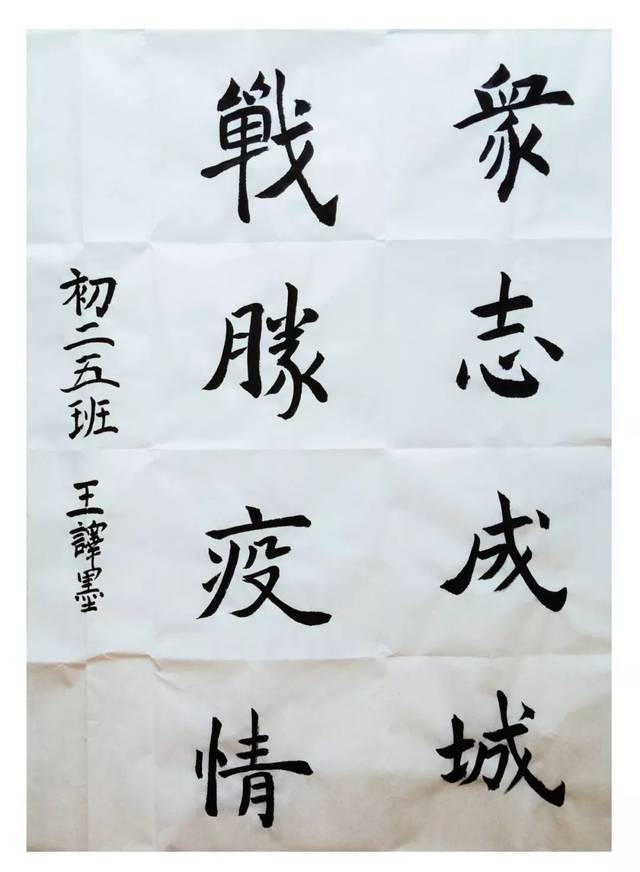 衆志成城
戰勝疫情
初二五班 王譯墨